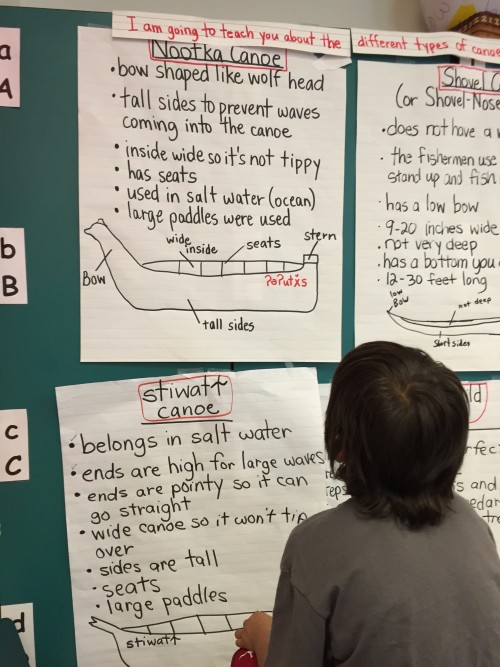 I am going to teach you about the different types of canoe
a
A
Nootka Canoe
• bow shaped like wolf head
• tall sides to prevent waves
coming into the canoe
• inside wide so it's not tippy
• has seats
• used in salt water (ocean)
• large paddles were used
wide inside
seats
stern
Bow
tall sides
Shovel
(or Shovel-Nose
• does not have a
• the fishermen use
stand up and fish
• has a low bow
• 9-20 inches wide
• not very deep
• has a bottom you
• 12-30 feet long
low
Bow
not deep
short sides
b
B
stiwatt
canoe
• belongs in salt water
• ends are high for large waves
• ends are pointy so it can
go straight
• wide canoe so it won't tip
over
• sides are tall
• seats
• large paddles
stiwatt
c
C
d
and